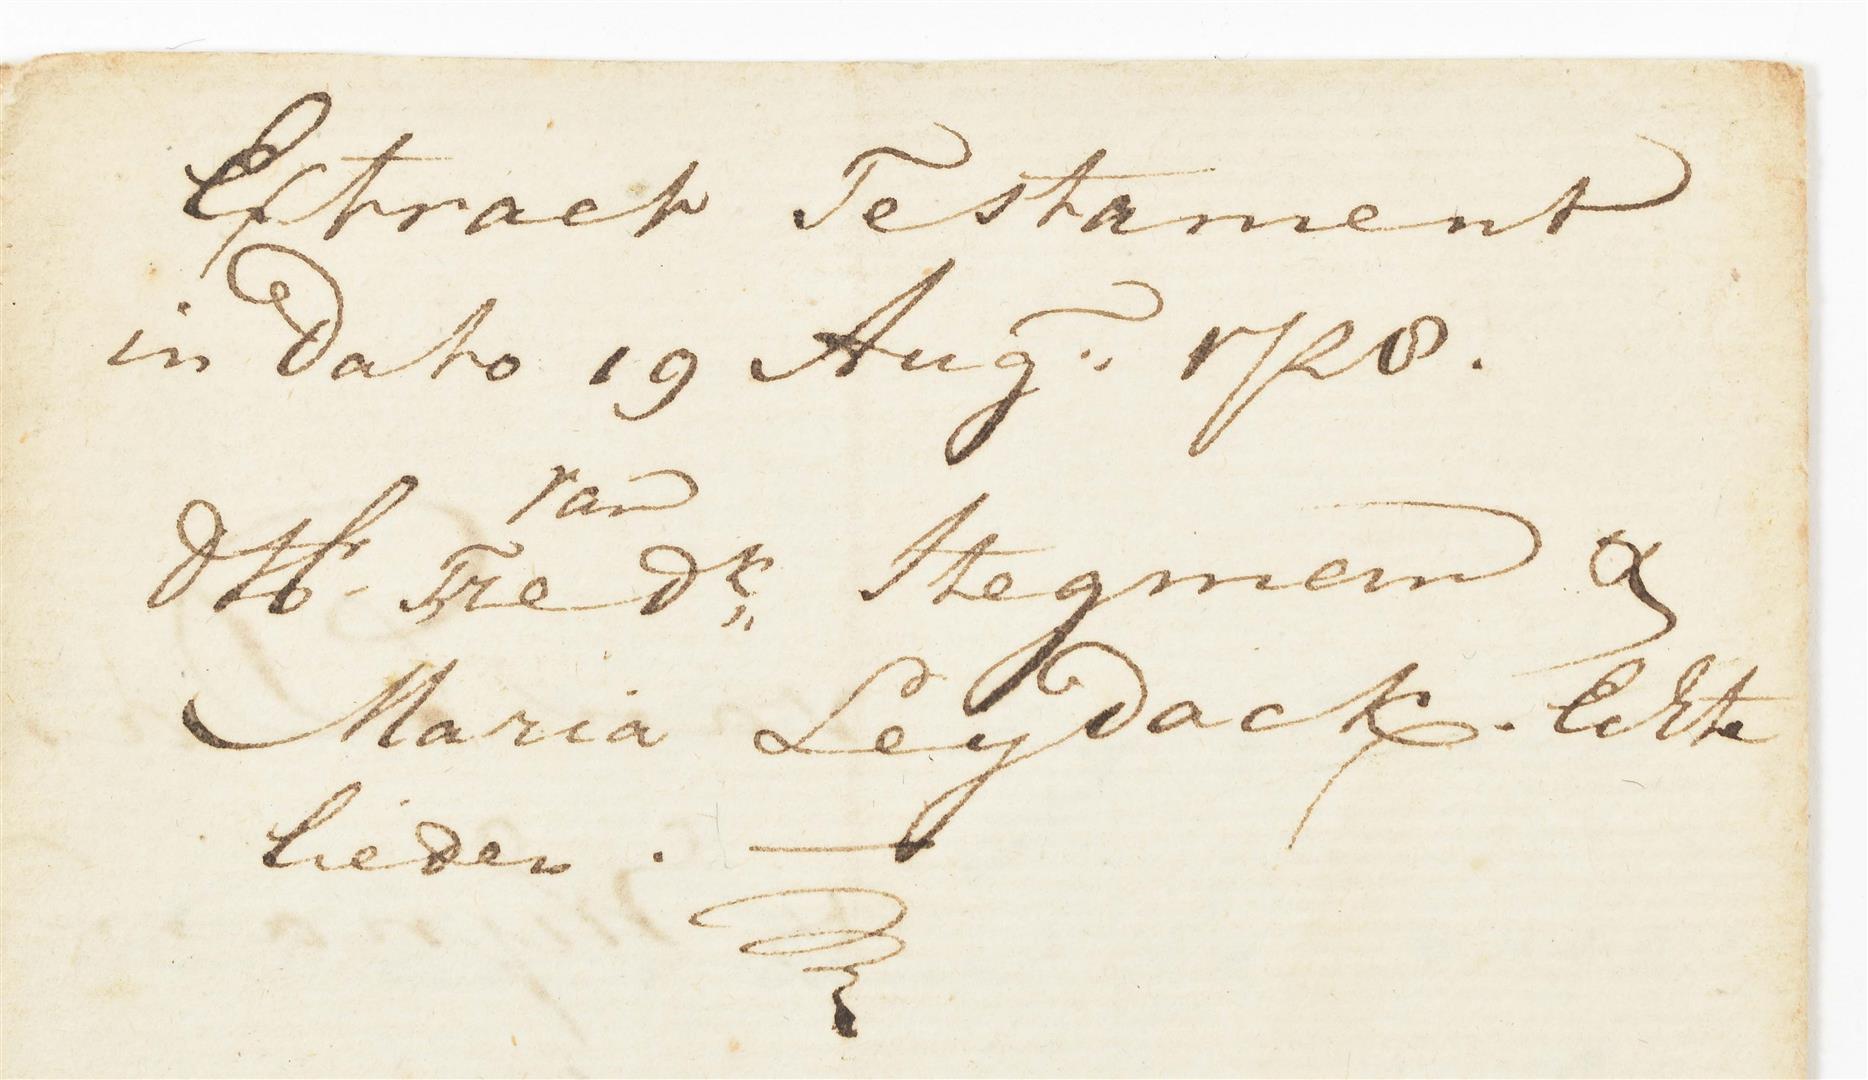 Extract Testament
in dato 19 Aug: 1728.
van
dHr. Fredk: Stegmem &
Maria Leydack. Echte
lieden.